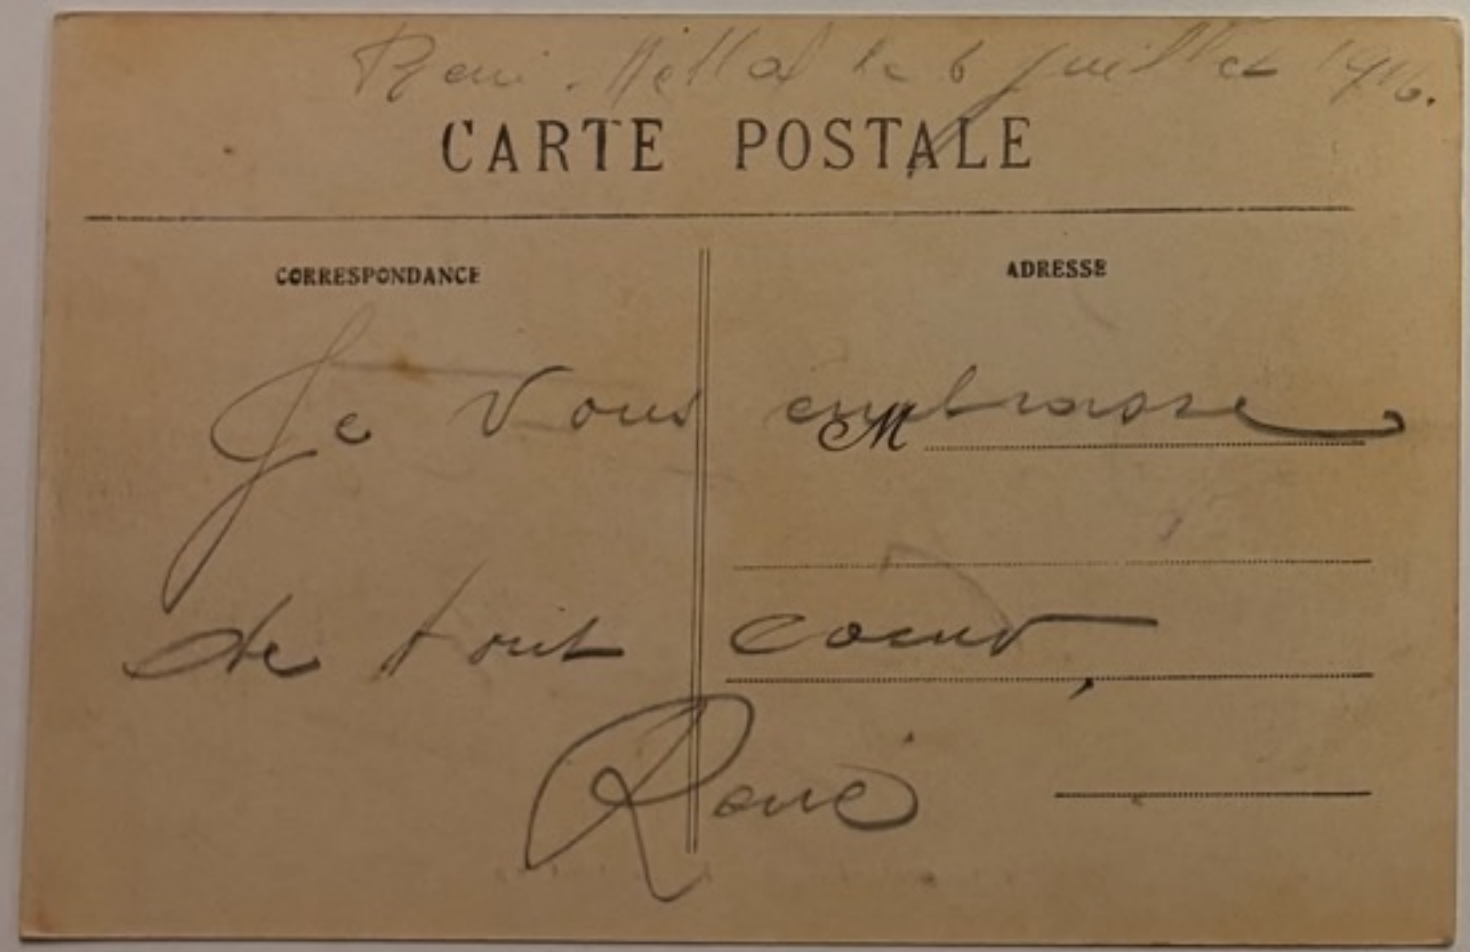 Beni-Mellal le 6 juillet 1916.
CARTE POSTALE
CORRESPONDANCE
ADRESSE
Je vous embrasse
M
de tout coeur,
René